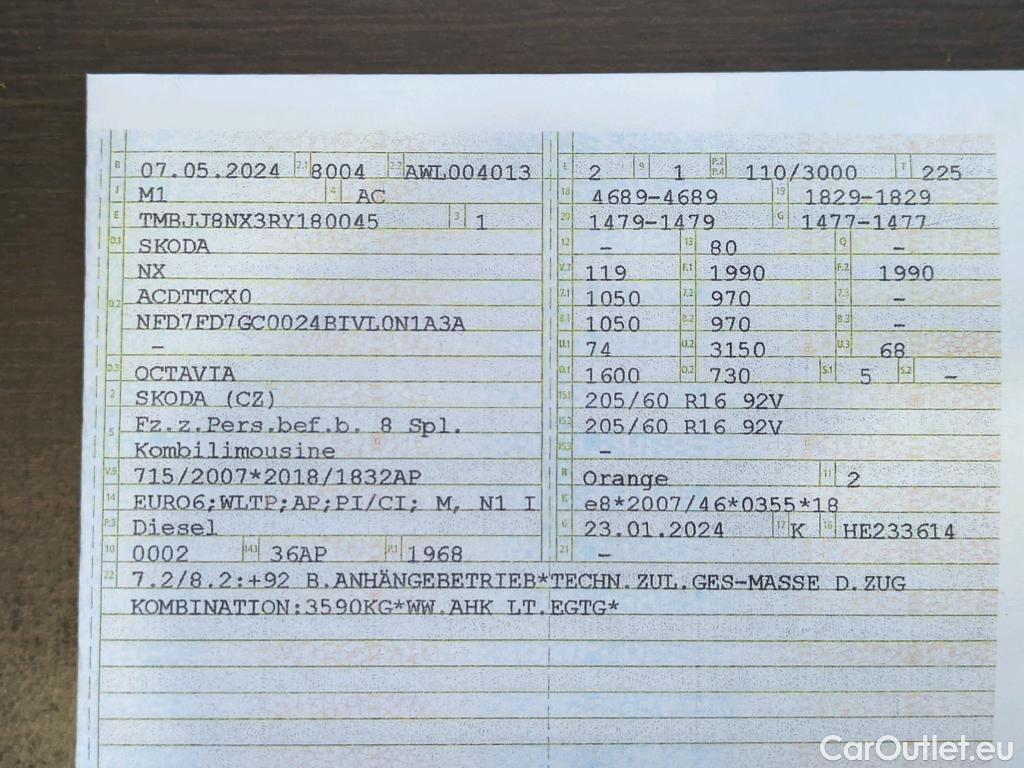 B 07.05.2024 2.1 8004 2.2 AWL004013
J M1 4 AC
E TMBJJ8NX3RY180045 3 1
D.1 SKODA
NX
D.2 ACDTTCX0
NFD7FD7GC0024BIVL0N1A3A
–
D.3 OCTAVIA
2 SKODA (CZ)
5 Fz.z.Pers.bef.b. 8 Spl.
Kombilimousine
V.9 715/2007*2018/1832AP
14 EURO6;WLTP;AP;PI/CI; M, N1 I
P.3 Diesel
10 0002 14.1 36AP P.1 1968
L 2 9 1 P.2 P.4 110/3000 T 225
18 4689-4689 19 1829-1829
20 1479-1479 G 1477-1477
12 – 13 80 Q –
V.7 119 F.1 1990 F.2 1990
7.1 1050 7.2 970 7.3 –
8.1 1050 8.2 970 8.3 –
U.1 74 U.2 3150 U.3 68
O.1 1600 O.2 730 S.1 5 S.2 –
15.1 205/60 R16 92V
15.2 205/60 R16 92V
15.3 –
R Orange 11 2
K e8*2007/46*0355*18
6 23.01.2024 17 K 16 HE233614
21 –
22 7.2/8.2:+92 B.ANHÄNGEBETRIEB*TECHN.ZUL.GES-MASSE D.ZUG
KOMBINATION:3590KG*WW.AHK LT.EGTG*
CarOutlet.eu